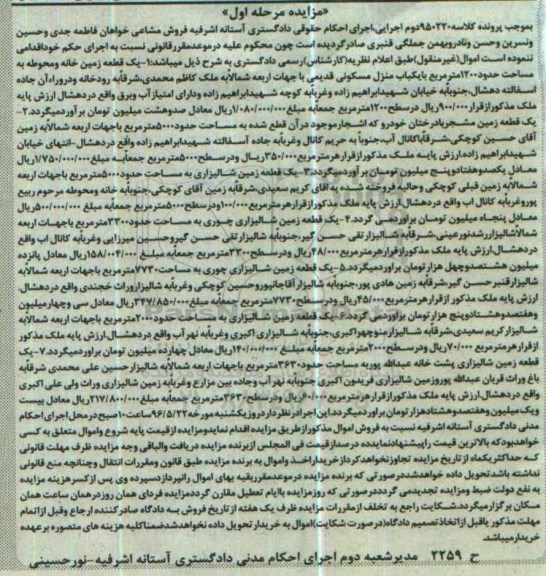 «مزایده مرحله اول»
بموجب پرونده کلاسه۹۵۰۲۲۰دوم اجرایی،اجرای احکام حقوقی دادگستری آستانه اشرفیه فروش مشاعی خواهان فاطمه جدی وحسین
ونسرین وحسن ونادروبهمن جملگی قنبری صادرگردیده است چون محکوم علیه درموعدمقررقانونی نسبت به اجرای حکم خوداقدامی
ننموده است اموال(غیرمنقول)طبق اعلام نظریه(کارشناس)رسمی دادگستری به شرح ذیل میباشد:۱-یک قطعه زمین خانه ومحوطه به
مساحت حدود۱۲۰۰مترمربع بایکباب منزل مسکونی قدیمی با جهات اربعه شمالابه ملک کاظم محمدی،شرقابه رودخانه ودروراه‌آن جاده
اسفالته دهشال،جنوبابه خیابان شهیدابراهیم زاده وغربابه کوچه شهیدابراهیم زاده ودارای امتیازآب وبرق واقع دردهشال ارزش پایه
ملک مذکورازقرار۹۰۰/۰۰۰ریال درسطح۱۲۰۰مترمربع جمعابه مبلغ۱/۰۸۰/۰۰۰/۰۰۰ریال معادل صدوهشت میلیون تومان برآوردمیگردد.۲-
یک قطعه زمین مشجربادرختان خودرو که اشجارموجود درآن قطع شده به مساحت حدود۵۰۰۰مترمربع باجهات اربعه شمالابه زمین
آقای حسین کوچکی،شرقاباکانال آب،جنوبا به حریم کانال وغربابه جاده آسفالته شهیدابراهیم زاده واقع دردهشال-انتهای خیابان
شهیدابراهیم زاده،ارزش پایه ملک مذکورازقرارهرمترمربع۳۵۰/۰۰۰ریال ودرسطح۵۰۰۰مترمربع جمعابه مبلغ۱/۷۵۰/۰۰۰/۰۰۰ریال
معادل یکصدوهفتادوپنج میلیون تومان برآوردمیگردد.۳-یک قطعه زمین شالیزاری به مساحت حدود۵۰۰۰مترمربع باجهات اربعه
شمالابه زمین قبلی کوچکی وحالیه فروخته شده به آقای کریم سعیدی،شرقابه زمین آقای کوچکی،جنوبابه خانه ومحوطه مرحوم ربیع
پوروغربابه کانال اب واقع دردهشال.ارزش پایه ملک مذکورازقرارهرمترمربع۱۰۰/۰۰۰ودرسطح۵۰۰۰مترمربع جمعابه مبلغ ۵۰۰/۰۰۰/۰۰۰ریال
معادل پنجاه میلیون تومان برآوردمی گردد.۴-یک قطعه زمین شالیزاری چوری به مساحت حدود۳۳۰۰مترمربع باجهات اربعه
شمالاشالیزاررشدنورعینی،شرقابه شالیزارتقی حسن گیر،جنوبابه شالیزارتقی حسن گیروحسین میرزایی وغربابه کانال اب واقع
دردهشال.ارزش پایه ملک مذکورازقرارهرمترمربع۴۸/۰۰۰ریال ودرسطح۳۳۰۰مترمربع جمعابه مبلغ۱۵۸/۰۰۴/۰۰۰ریال معادل پانزده
میلیون هشتصدوچهل هزارتومان برآوردمیگردد.۵-یک قطعه زمین شالیزاری چوری به مساحت۷۷۳۰مترمربع باجهات اربعه شمالابه
شالیزارقنبرحسن گیر،شرقابه زمین هادی پور،جنوبابه شالیزارآقاجانپوروحسین کوچکی وغربابه شالیزاروراث خجندی واقع دردهشال،
ارزش پایه ملک مذکور ازقرارهرمترمربع۴۵/۰۰۰ریال ودرسطح۷۷۳۰مترمربع جمعابه مبلغ۳۴۷/۸۵۰/۰۰۰ریال معادل سی وچهارمیلیون
وهفتصدوهشتادوپنج هزارتومان برآوردمی گردد.۶-یک قطعه زمین شالیزاری به مساحت حدود۲۰۰۰مترمربع باجهات اربعه شمالابه
شالیزارکریم سعیدی،شرقابه شالیزارمنوچهراکبری،جنوبابه شالیزاری اکبری وغربابه نهرآب واقع دردهشال.ارزش پایه ملک مذکور
ازقرارهرمترمربع ۷۰/۰۰۰ریال ودرسطح۲۰۰۰مترمربع جمعابه مبلغ ۱۴۰/۰۰۰/۰۰۰ریال معادل چهارده میلیون تومان برآوردمیگردد.۷-یک
قطعه زمین شالیزاری پشت خانه عبدالله پوربه مساحت حدود۳۶۳۰مترمربع باجهات اربعه شمالابه شالیزارحسین علی محمدی شرقابه
باغ وراث قربان عبدالله پوروزمین شالیزاری فریدون اکبری جنوبابه نهرآب وجاده بین مزارع وغربابه زمین شالیزاری وراث ولی علی اکبری
واقع دردهشال.ارزش پایه ملک مذکورازقرارهرمترمربع۶۰/۰۰۰ریال ودرسطح۳۶۳۰مترمربع جمعابه مبلغ۲۱۷/۸۰۰/۰۰۰ریال معادل بیست
ویک میلیون وهفتصدوهشتادهزارتومان برآوردمیگردد.این اجرادرنظرداردروزیکشنبه مورخه۹۶/۵/۲۲ساعت۱۰صبح درمحل اجرای احکام
مدنی دادگستری آستانه اشرفیه نسبت به فروش اموال مذکورازطریق مزایده اقدام نمایدومزایده ازقیمت پایه شروع واموال متعلق به کسی
خواهدبودکه بالاترین قیمت راپیشنهادنمایدده درصدازقیمت فی المجلس ازبرنده مزایده دریافت والباقی وجه مزایده ظرف مهلت قانونی
که حداکثریکماه از تاریخ مزایده تجاوزنخواهدکرداز خریداراخذ واموال به برنده مزایده طبق قانون ومقررات انتقال وچنانچه منع قانونی
نداشته باشدتحویل داده خواهدشددرصورتی که برنده مزایده درموعدمقرربقیه بهای اموال رانپردازدسپرده وی پس ازکسرهزینه مزایده
به نفع دولت ضبط ومزایده تجدیدمی گردددرصورتی که روزمزایده باایام تعطیل مقارن گرددمزایده فردای همان روزدرهمان ساعت همان
مکان برگزارمیگردد.شکایت راجع به تخلف ازمقررات مزایده ظرف یک هفته از تاریخ فروش به دادگاه صادرکننده ارجاع وقبل ازاتمام
مهلت مذکور یاقبل ازاتخاذتصمیم دادگاه(درصورت شکایت)اموال به خریدارتحویل داده نخواهدشدضمناکلیه هزینه های متصوره برعهده
خریدارمیباشد.
ح ۲۲۵۹ مدیرشعبه دوم اجرای احکام مدنی دادگستری آستانه اشرفیه-نورحسینی